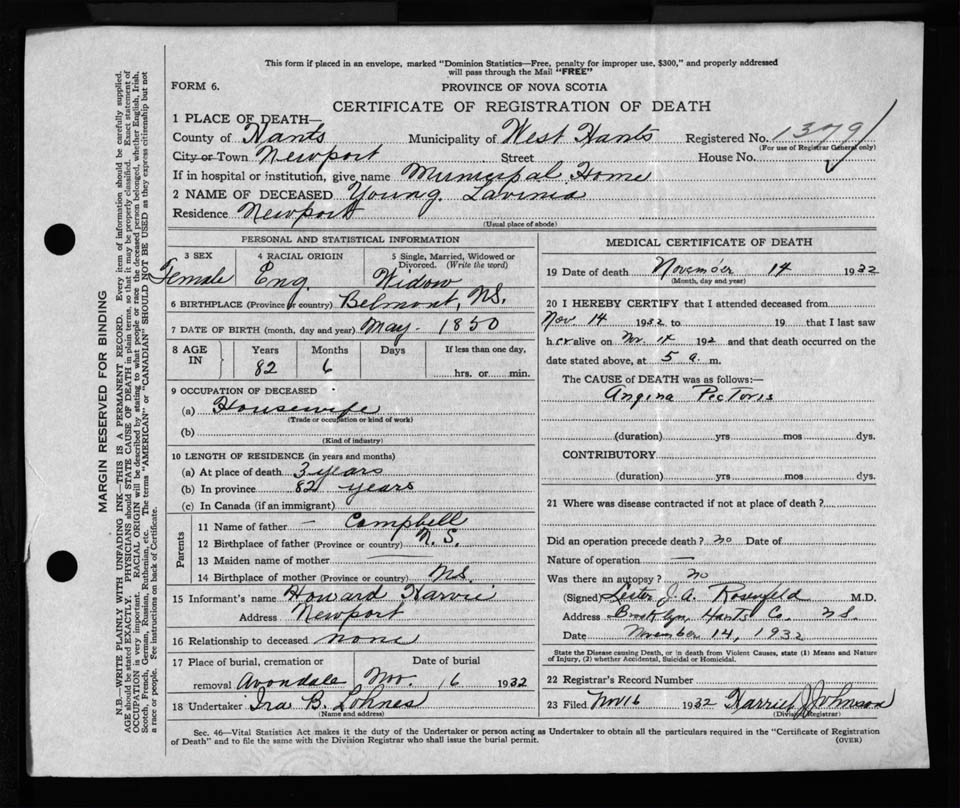 This form if placed in an envelope, marked "Dominion Statistics—Free, penalty for improper use, $300," and properly addressed
will pass through the Mail "FREE"
FORM 6.
PROVINCE OF NOVA SCOTIA
CERTIFICATE OF REGISTRATION OF DEATH
1 PLACE OF DEATH—
County of Hants Municipality of West Hants Registered No. 1379
(For use of Registrar General only)
City or Town Newport Street House No.
If in hospital or institution, give name Municipal Home
2 NAME OF DECEASED Young Lavinia
Residence Newport
(Usual place of abode)
PERSONAL AND STATISTICAL INFORMATION
3 SEX 4 RACIAL ORIGIN 5 Single, Married, Widowed or
Divorced. (Write the word)
Female Eng. Widow
6 BIRTHPLACE (Province or country) Belmont, NS.
7 DATE OF BIRTH (month, day and year) May - 1850
8 AGE IN Years Months Days If less than one day,
82 6 hrs. or min.
9 OCCUPATION OF DECEASED
(a) Housewife
(Trade or occupation or kind of work)
(b)
(Kind of industry)
10 LENGTH OF RESIDENCE (in years and months)
(a) At place of death 3 years
(b) In province 82 years
(c) In Canada (if an immigrant)
Parents
11 Name of father — Campbell
12 Birthplace of father (Province or country) N.S.
13 Maiden name of mother —
14 Birthplace of mother (Province or country) NS.
15 Informant's name Howard Harvie
Address Newport
16 Relationship to deceased none
17 Place of burial, cremation or Date of burial
removal Avondale Nov. 16 1932
18 Undertaker Ira B. Lohnes
(Name and address)
MEDICAL CERTIFICATE OF DEATH
19 Date of death November 14 1932
(Month, day and year)
20 I HEREBY CERTIFY that I attended deceased from
Nov 14 1932 to 19 that I last saw
her alive on Nov. 14 192 and that death occurred on the
date stated above, at 5 a. m.
The CAUSE of DEATH was as follows:—
Angina Pectoris
(duration) yrs mos dys.
CONTRIBUTORY
(duration) yrs mos dys.
21 Where was disease contracted if not at place of death?
Did an operation precede death? no Date of
Nature of operation —
Was there an autopsy? no
(Signed) Lester J. A. Rosenfeld M.D.
Address Brooklyn, Hants Co. NS.
Date November 14, 1932
State the Disease causing Death, or in death from Violent Causes, state (1) Means and Nature
of Injury, (2) whether Accidental, Suicidal or Homicidal.
22 Registrar's Record Number
23 Filed Nov 16 1932 Harriet J Johnson
(Division Registrar)
Sec. 46—Vital Statistics Act makes it the duty of the Undertaker or person acting as Undertaker to obtain all the particulars required in the "Certificate of Registration
of Death" and to file the same with the Division Registrar who shall issue the burial permit.
(OVER)
MARGIN RESERVED FOR BINDING
N.B.—WRITE PLAINLY WITH UNFADING INK—THIS IS A PERMANENT RECORD. Every item of information should be carefully supplied.
AGE should be stated EXACTLY. PHYSICIANS should STATE CAUSE OF DEATH in plain terms, so that it may be properly classified. Exact statement of
OCCUPATION is very important. RACIAL ORIGIN will be described by stating to what people or race the deceased person belonged, whether English, Irish,
Scotch, French, German, Russian, Ruthenian, etc. The terms "AMERICAN" or "CANADIAN" SHOULD NOT BE USED as they express citizenship but not
a race or people. See instructions on back of Certificate.